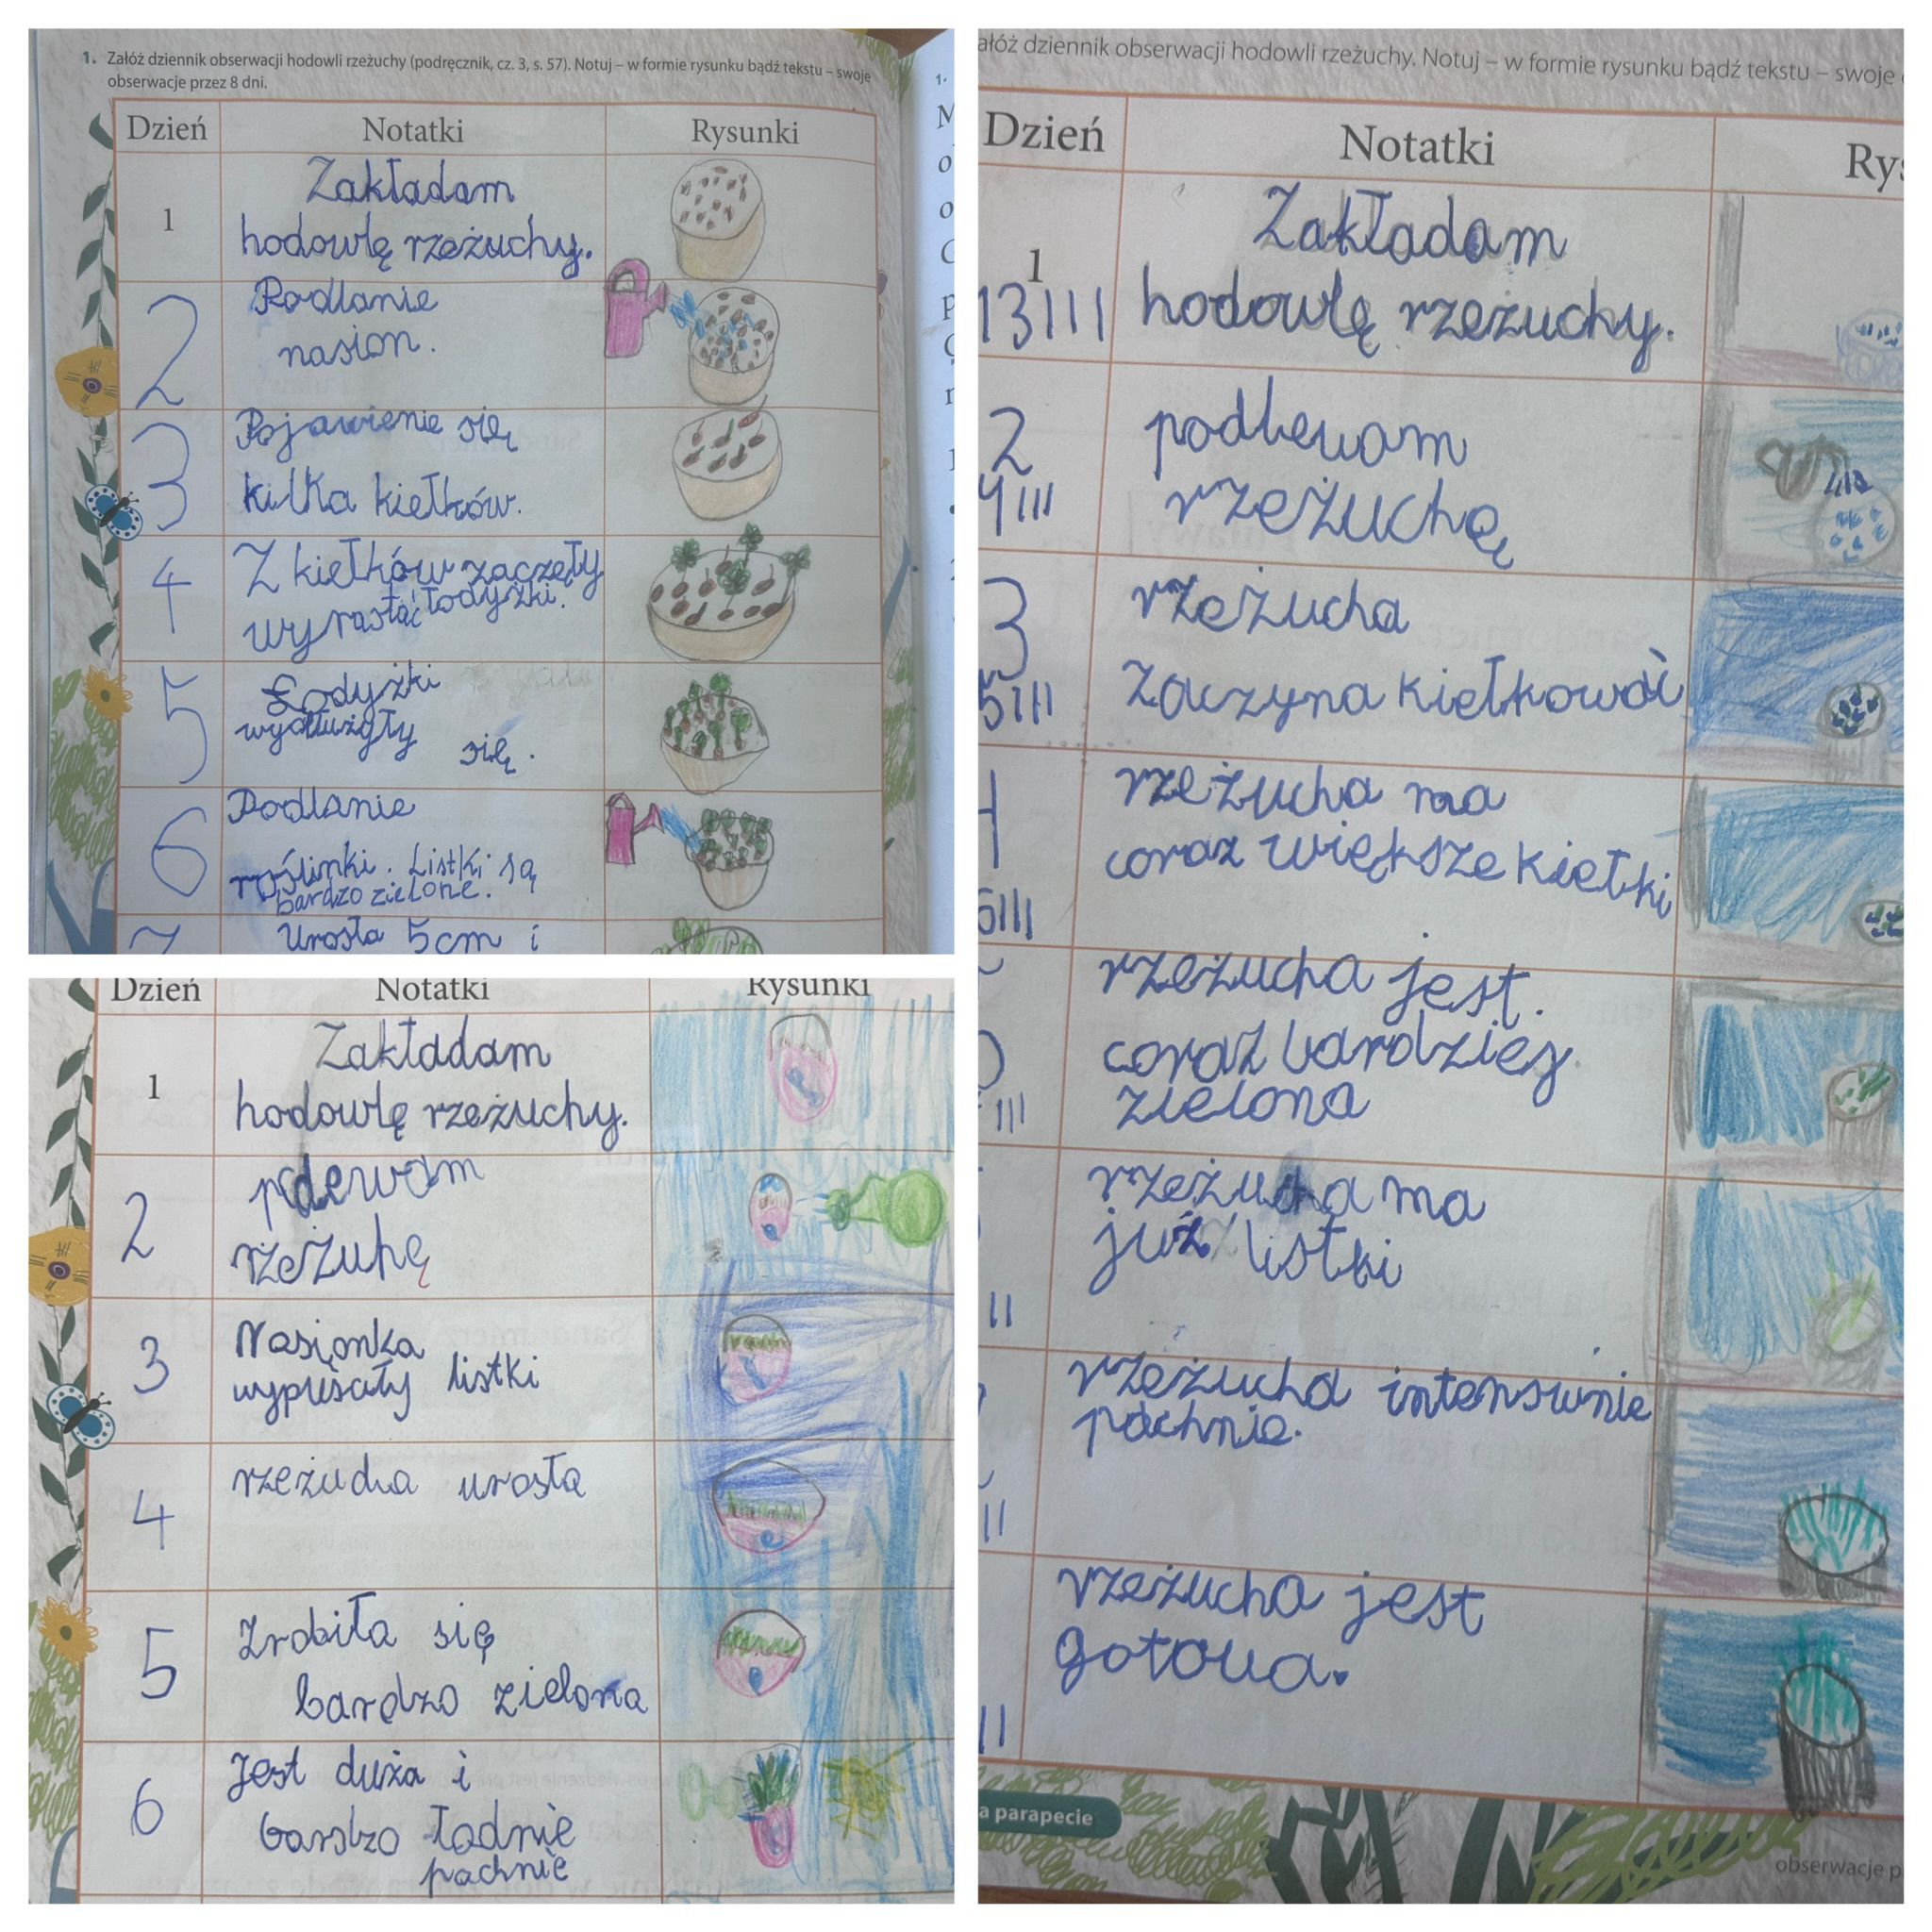 1. Załóż dziennik obserwacji hodowli rzeżuchy (podręcznik, cz. 3, s. 57). Notuj – w formie rysunku bądź tekstu – swoje
obserwacje przez 8 dni.
Dzień Notatki Rysunki
1 Zakładam
hodowlę rzeżuchy.
2 Podlanie
nasion.
3 Pojawienie się
kilka kiełków.
4 Z kiełków zaczęły
wyrastać łodyżki.
5 Łodyżki
wydłużyły się.
6 Podlanie
roślinki. Listki są
bardzo zielone.
7 Urosła 5cm i
Dzień Notatki Rysunki
1 Zakładam
hodowlę rzeżuchy.
2
rzeżuhę
3 Nasionka
listki
4 rzeżucha urosła
5 Zrobiła się
bardzo zielona
6 Jest duża i
bardzo ładnie
pachnie
ałóż dziennik obserwacji hodowli rzeżuchy. Notuj – w formie rysunku bądź tekstu – swoje
Dzień Notatki Rys
1 Zakładam
13III hodowlę rzeżuchy.
2 podlewam
rzeżuchę
3 rzeżucha
5III zaczyna kiełkować
4 rzeżucha ma
coraz większe kiełki
rzeżucha jest
coraz bardziej
zielona
rzeżucha ma
już listki
rzeżucha intensywnie
pachnie.
rzeżucha jest
gotowa.
a parapecie
obserwacje p